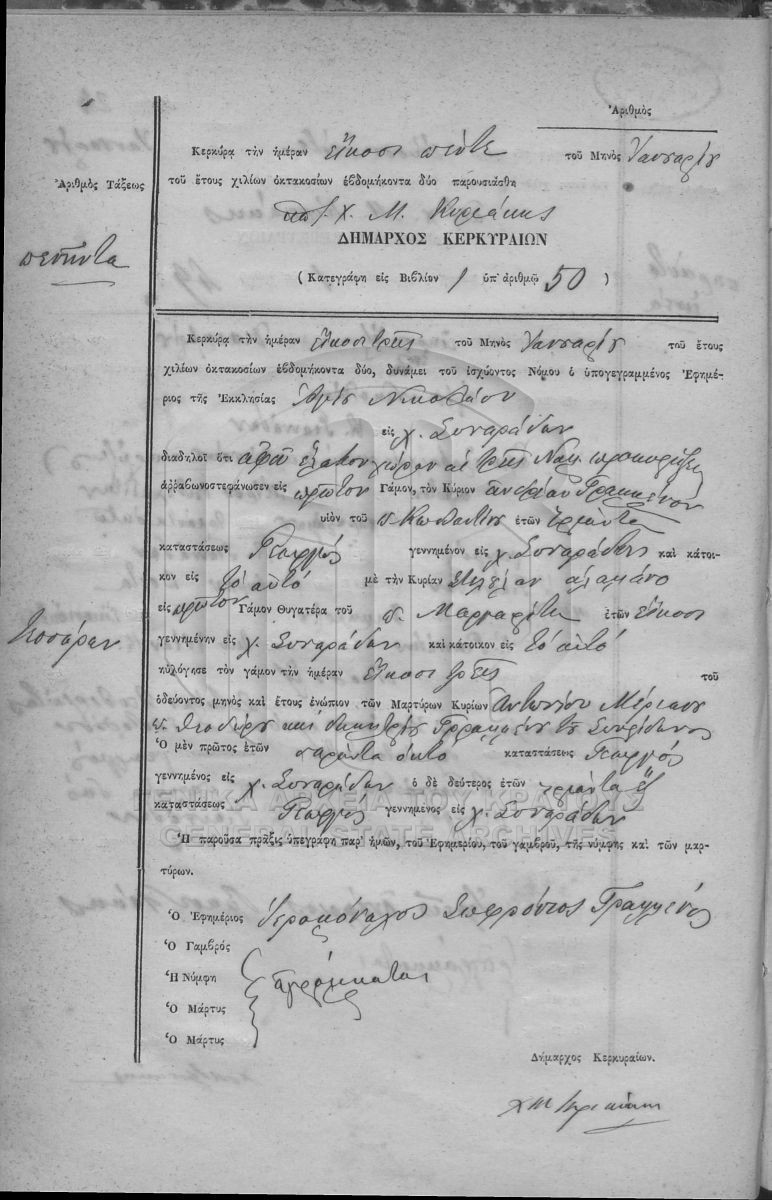 Ἀριθμὸς
Κερκύρᾳ τὴν ἡμέραν εἴκοσι πέντε τοῦ Μηνὸς Ἰανουαρίου
Ἀριθμὸς Τάξεως
τοῦ ἔτους χιλίων ὀκτακοσίων ἑβδομήκοντα δύο παρουσιάσθη
Χ. Μ. Κυριάκης
ΔΗΜΑΡΧΟΣ ΚΕΡΚΥΡΑΙΩΝ
πενῆντα
( Κατεγράφη εἰς Βιβλίον 1 ὑπ' ἀριθμῷ 50 )
Κερκύρᾳ τὴν ἡμέραν εἴκοσι τρεῖς τοῦ Μηνὸς Ἰανουαρίου τοῦ ἔτους
χιλίων ὀκτακοσίων ἑβδομήκοντα δύο, δυνάμει τοῦ ἰσχύοντος Νόμου ὁ ὑπογεγραμμένος Ἐφημέ-
ριος τῆς Ἐκκλησίας Ἁγίου Νικολάου
εἰς χ. Συναράδων
διαδηλοῖ ὅτι ἀφοῦ ἔλαβον χώραν αἱ τρεῖς
ἀρραβωνοστεφάνωσεν εἰς πρῶτον Γάμον, τὸν Κύριον Ἀνδρέαν Γραμμένον
υἱὸν τοῦ ἐτῶν τριάντα
καταστάσεως Γεωργός γεννημένον εἰς χ. Συναράδων καὶ κάτοι-
κον εἰς τὸ αὐτό μὲ τὴν Κυρίαν
εἰς πρῶτον Γάμον Θυγατέρα τοῦ π. Μαργαρίτη ἐτῶν εἴκοσι
τεσσάρων
γεννημένην εἰς χ. Συναράδων καὶ κάτοικον εἰς τὸ αὐτό
ηὐλόγησε τὸν γάμον τὴν ἡμέραν εἴκοσι τρεῖς τοῦ
ὁδεύοντος μηνὸς καὶ ἔτους ἐνώπιον τῶν Μαρτύρων Κυρίων Ἀντωνίου Μέριανου
π. Θεοδώρου καὶ Δημητρίου Γραμμένου τοῦ Σπυρίδωνος
Ὁ μὲν πρῶτος ἐτῶν σαράντα ὀκτὼ καταστάσεως Γεωργός
γεννημένος εἰς χ. Συναράδων ὁ δὲ δεύτερος ἐτῶν τριάντα ἕξ
καταστάσεως Γεωργός γεννημένος εἰς χ. Συναράδων
ΓΕΝΙΚΑ ΑΡΧΕΙΑ ΤΟΥ ΚΡΑΤΟΥΣ
GENERAL STATE ARCHIVES
Ἡ παροῦσα πρᾶξις ὑπεγράφη παρ' ἡμῶν, τοῦ Ἐφημερίου, τοῦ γαμβροῦ, τῆς νύμφης καὶ τῶν μαρ-
τύρων.
Ὁ Ἐφημέριος Ἱερομόναχος Σωφρόνιος Γραμμένος
Ὁ Γαμβρός
Ἡ Νύμφη ἀγράμματοι
Ὁ Μάρτυς
Ὁ Μάρτυς
Δήμαρχος Κερκυραίων.
Χ Μ Κυριάκης